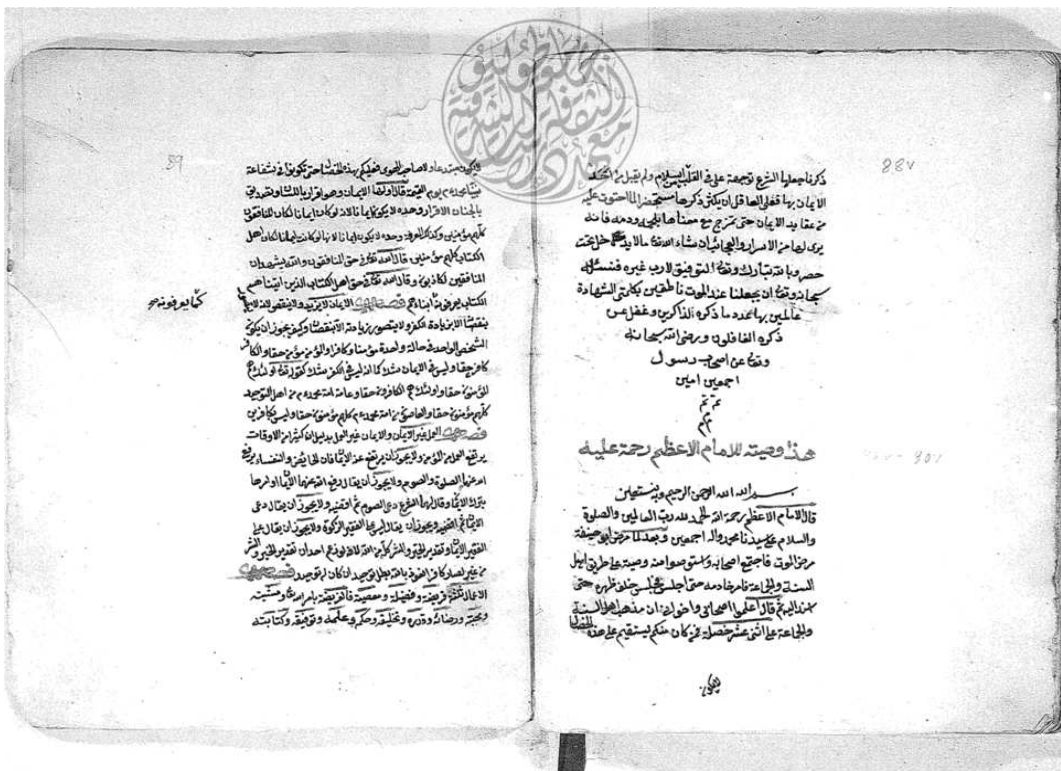 ذكرنا جعلها الشرع ترجمة على ما في القلب من الاسلام ولم يقبل من احد
الايمان بها فعلى العاقل ان يكثر ذكرها مستحضرا لما احتوت عليه
من عقايد الايمان حتى تمتزج مع معناها بلحمه ودمه فانه
يرى لها من الاسرار والعجائب ان شاء الله تعا ما لا يدخل تحت
حصر وبالله تبارك وتعا التوفيق لا رب غيره فنسئله
سبحانه وتعا ان يجعلنا عند الموت ناطقين بكلمتي الشهادة
عالمين بها عدد ما ذكره الذاكرين وغفل عن
ذكره الغافلون ورضى الله سبحانه
وتعا عن اصحاب رسول
اجمعين امين
تم تم
تم
هذا وصيته للامام الاعظم رحمة عليه
بسم الله الرحمن الرحيم وبه نستعين
قال الامام الاعظم رحمة الله الحمد لله رب العالمين والصلوة
والسلام على سيدنا محمد واله اجمعين وبعد لما مرض ابو حنيفة
مرض الموت فاجتمع اصحابه واستوصوا منه وصية على طريق اهل
السنة والجماعة فامر خادمه حتى اجلس فجلس خلف ظهره حتى
استند اليه ثم قال اعلموا اصحابي واخواني ان مذهب اهل السنة
والجماعة على اثنى عشر خصلة فمن كان منكم يستقيم على هذه الخصال
لا يكون
لا يكون مبتدعا ولا صاحب الهوى فعليكم بهذه الخصال حتى تكونوا في شفاعة
نبينا محمد م يوم القيمة قال اولها الايمان وهو اقرار باللسان وتصديق
بالجنان الاقرار وحده لا يكون ايمانا لانه لو كان ايمانا لكان المنافقون
كلهم مؤمنين وكذلك المعرفة وحده لا يكون ايمانا لانها لو كانت ايمانا لكان اهل
الكتاب كلهم مؤمنين قال الله تعا في حق المنافقون والله يشهد ان
المنافقين لكاذبون وقال الله تعا في حق اهل الكتاب الذين اتيناهم
الكتاب يعرفون ابناءهم فصل الايمان لا يزيد ولا ينقص لانه لا
كما يعرفونه صح
ينقصان الا بزيادة الكفر ولا يتصور زيادته الا بنقصان وكيف يجوز ان يكون
الشخص الواحد في حالة واحدة مؤمنا وكافرا والمؤمن مؤمن حقا والكافر
كافر حقا وليس في الايمان شك كما انه ليس في الكفر شك كقوله تعا اولئك هم
المؤمنون حقا واولئك هم الكافرون حقا وعامة امة محمد م من اهل التوحيد
كلهم مؤمنون حقا والعاصون من امة محمد م كلهم مؤمنون حقا وليس بكافرين
فصل العمل غير الايمان والايمان غير العمل بدليل ان كثيرا من الاوقات
يرتفع العمل من المؤمن ولا يجوز ان يرتفع عنه الايمان فان الحائض والنفساء يرفع
الله عنها الصلوة والصوم ولا يجوز ان يقال رفع الله عنها الايمان او امرها
بترك الايمان وقال لها الشرع دعى الصوم ثم اقضيه ولا يجوز ان يقال دعى
الايمان ثم اقضيه ويجوز ان يقال ليس على الفقير الزكوة ولا يجوز ان يقال على
الفقير الايمان وتقدير الخير والشر كله من الله لانه لو زعم احد ان تقدير الخير والشر
من غيره لصار كافرا بالله بطل توحيده ان كان له توحيد فصل
الاعمال ثلثة فريضة وفضيلة ومعصية فالفريضة بامر الله تعا ومشيته
ومحبته ورضائه وقدره وتخليقه وحكمه وعلمه وتوفيقه وكتابته